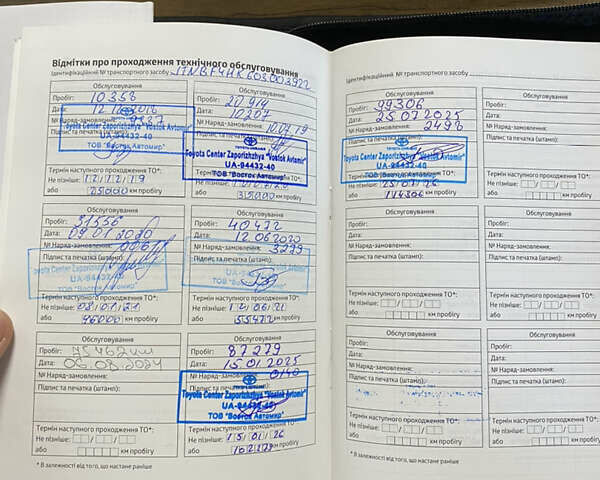 Відмітки про проходження технічного обслуговування
Ідентифікаційний № транспортного засобу
Обслуговування
Пробіг: 10358
Дата:
№ Наряд-замовлення:
Toyota Center Zaporizhzhya "Vostok Avtomir"
UA-94432-40
ТОВ "Восток Автомир"
Термін наступного проходження ТО*:
Не пізніше: 12/12/19
або 25000 км пробігу
Обслуговування
Пробіг: 20914
Дата: 10.07.19
№ Наряд-замовлення: 0207
Підпис та печатка (штамп):
Toyota Center Zaporizhzhya "Vostok Avtomir"
UA-94432-40
ТОВ "Восток Автомир"
або 35000 км пробігу
Обслуговування
Пробіг: 31556
Дата: 29 01 2020
№ Наряд-замовлення:
Підпис та печатка (штамп):
Toyota Center Zaporizhzhya
UA-94432-40
ТОВ "Восток Автомир"
Термін наступного проходження ТО*:
Не пізніше: 08/01/21
або 46000 км пробігу
Обслуговування
Пробіг: 40472
Дата: 12 06 2020
№ Наряд-замовлення: 3299
Підпис та печатка (штамп):
Термін наступного проходження ТО*:
Не пізніше:
або 55472 км пробігу
Обслуговування
Пробіг: 75462 км
Дата: 06.08.2024
№ Наряд-замовлення:
Підпис та печатка (штамп):
Термін наступного проходження ТО*:
Не пізніше:
або км пробігу
Обслуговування
Пробіг: 87279
Дата: 15.01.2025
№ Наряд-замовлення: 0140
Підпис та печатка (штамп):
Toyota Center Zaporizhzhya "Vostok Avtomir"
UA-94432-40
ТОВ "Восток Автомир"
Термін наступного проходження ТО*:
Не пізніше: 15/01/26
або км пробігу
* В залежності від того, що настане раніше
Ідентифікаційний № транспортного засобу
Обслуговування
Пробіг: 99306
Дата: 25.07.2025
№ Наряд-замовлення: 2498
Підпис та печатка (штамп):
Toyota Center Zaporizhzhya "Vostok Avtomir"
UA-94432-40
ТОВ "Восток Автомир"
Термін наступного проходження ТО*:
Не пізніше: 25/07/26
або 114306 км пробігу
Обслуговування
Пробіг:
Дата:
№ Наряд-замовлення:
Підпис та печатка
Термін наступного
Не пізніше:
або
Обслуговування
Пробіг:
Дата:
№ Наряд-замовлення:
Підпис та печатка (штамп):
Термін наступного проходження ТО*:
Не пізніше:
або км пробігу
Пробіг:
Дата:
№ Наряд-замовлення:
Підпис та печатка
Термін наступного
Не пізніше:
або
Обслуговування
Пробіг:
Дата:
№ Наряд-замовлення:
Підпис та печатка (штамп):
Термін наступного проходження ТО*:
Не пізніше:
або км пробігу
Пробіг:
Дата:
№ Наряд-замовлення:
Підпис та печатка
Термін наступного
Не пізніше:
або
* В залежності від того, що настане раніше